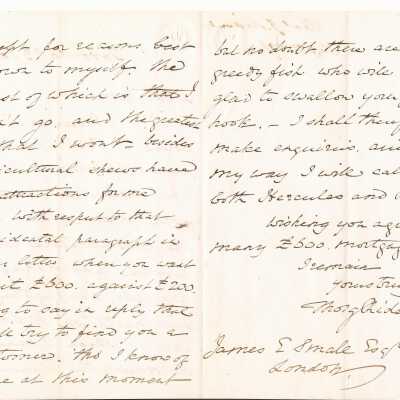 for reasons best
to myself. the
of which is that I
go. and the greatest
that I wont besides
shews have
attractions for me
with respect to that
paragraph in
letter when you want
£500. against £200.
to say in reply that
try to find you a
tho I know of
at this moment
but no doubt there are
greedy fish who will
glad to swallow your
hook. – I shall
make enquiries. and
my way I will
both Hercules and
wishing you
many £500. mortga
I remain
yours tru
James E Smale Esqr
London